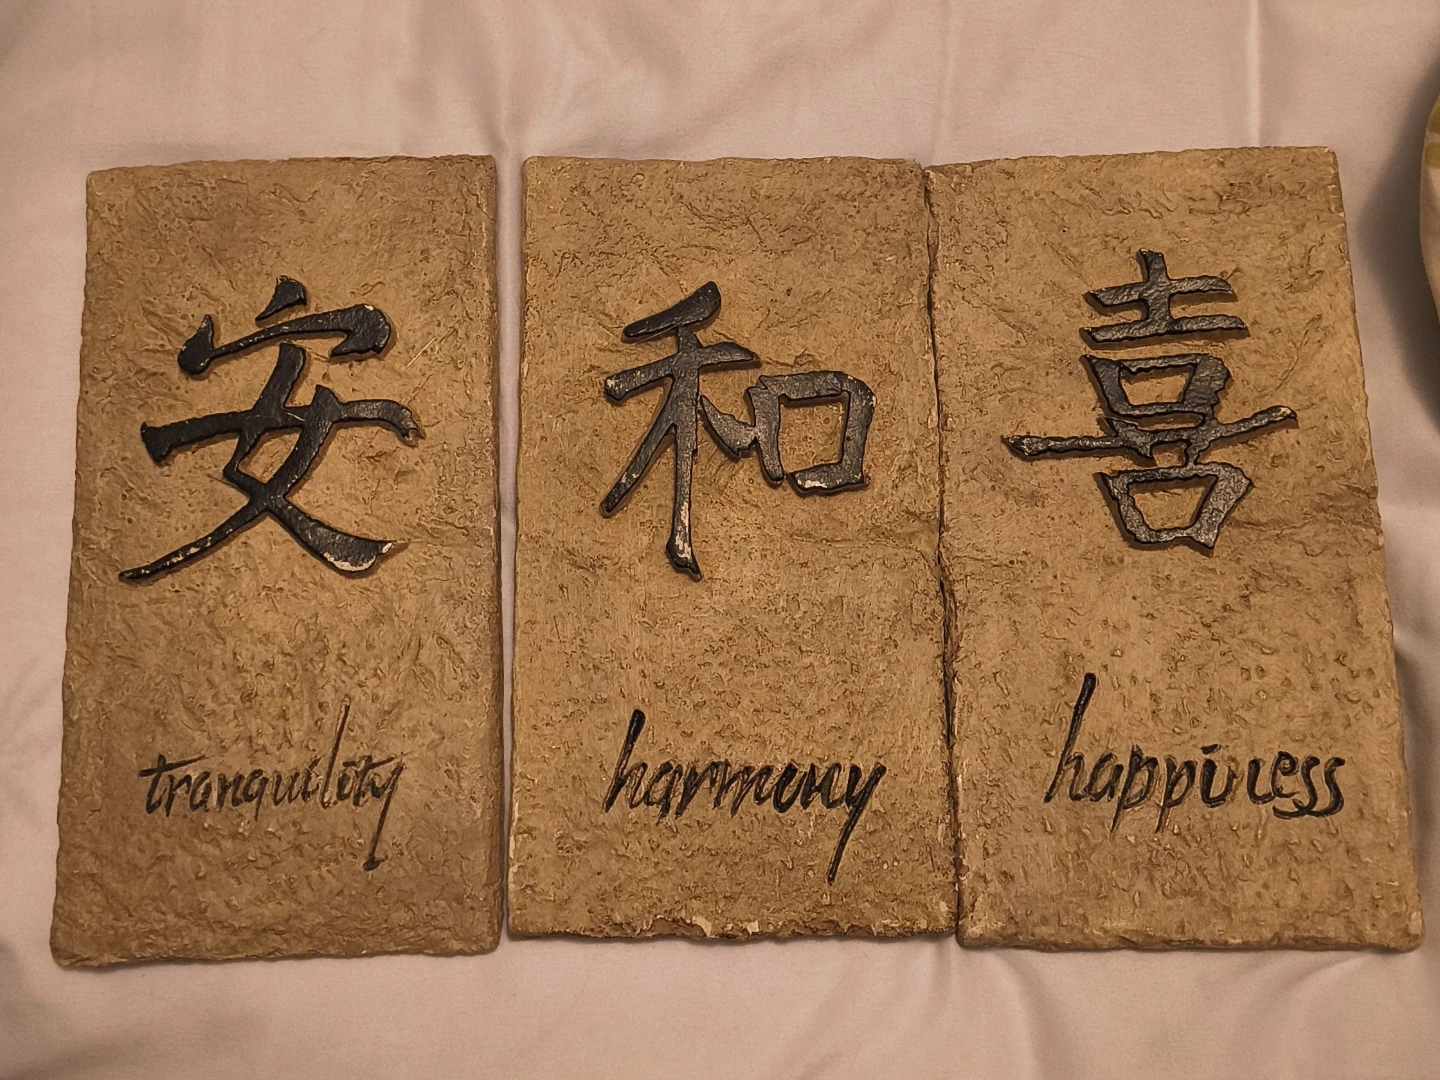 安
tranquility
和
harmony
喜
happiness